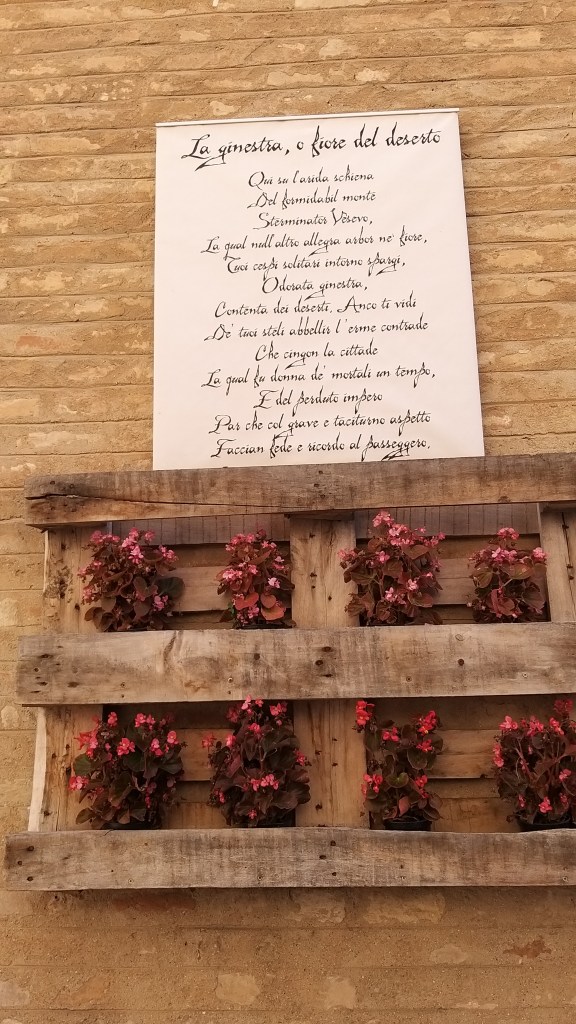 La ginestra, o fiore del deserto
Qui su l'arida schiena
Del formidabil monte
Sterminator Vèsevo,
La qual null'altro allegra arbor nè fiore,
Tuoi cespi solitari intorno spargi,
Odorata ginestra,
Contenta dei deserti. Anco ti vidi
De' tuoi steli abbellir l'erme contrade
Che cingon la cittade
La qual fu donna de' mortali un tempo,
E del perduto impero
Par che col grave e taciturno aspetto
Faccian fede e ricordo al passeggero.